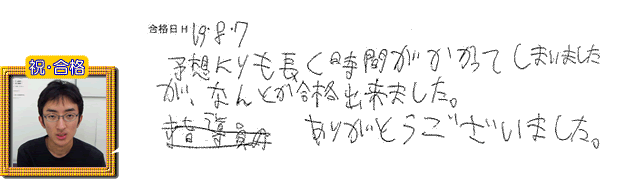 祝・合格
合格日 H 19.8.7
予想よりも長く時間がかかってしまいました
が、なんとか合格出来ました。
指導員の ありがとうございました。